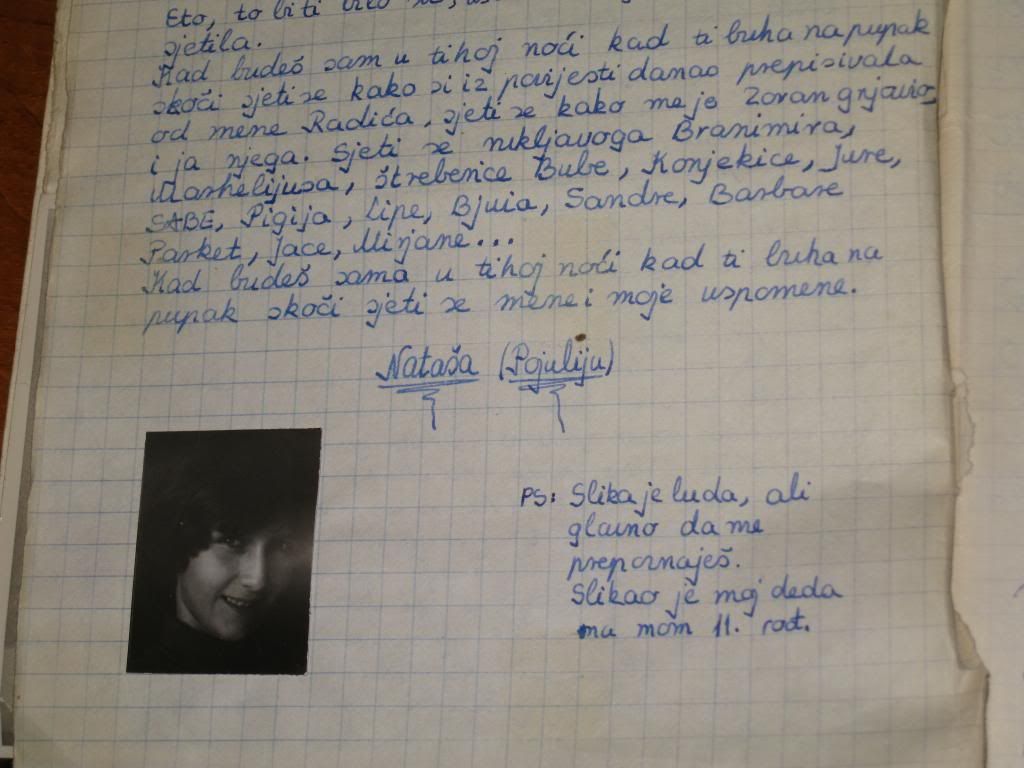 Eto, to bi ti bilo
sjetila.
Kad budeš sam u tihoj noći kad ti buha na pupak
skoči sjeti se kako si iz povijesti danao prepisivala
od mene Radića, sjeti se kako me je Zoran gnjavio
i ja njega. Sjeti se nukljavoga Branimira,
Marhelijusa, štreberice Bube, Konjekice, Jure,
SABE, Pigija, Lipe, Bjuia, Sandre, Barbare
Parket, Jace, Mirjane...
Kad budeš sama u tihoj noći kad ti buha na
pupak skoči sjeti se mene i moje uspomene.
Nataša (Pojuliju)
PS: Slika je luda, ali
glavno da me
prepoznaješ.
Slikao je moj deda
na mom 11. rođ.